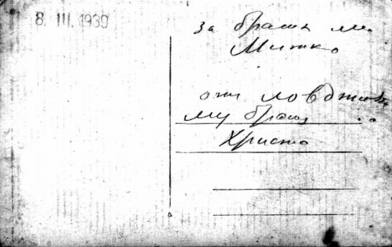 8. III. 1939
за братъ ми
Митко
отъ
му братъ
Христо